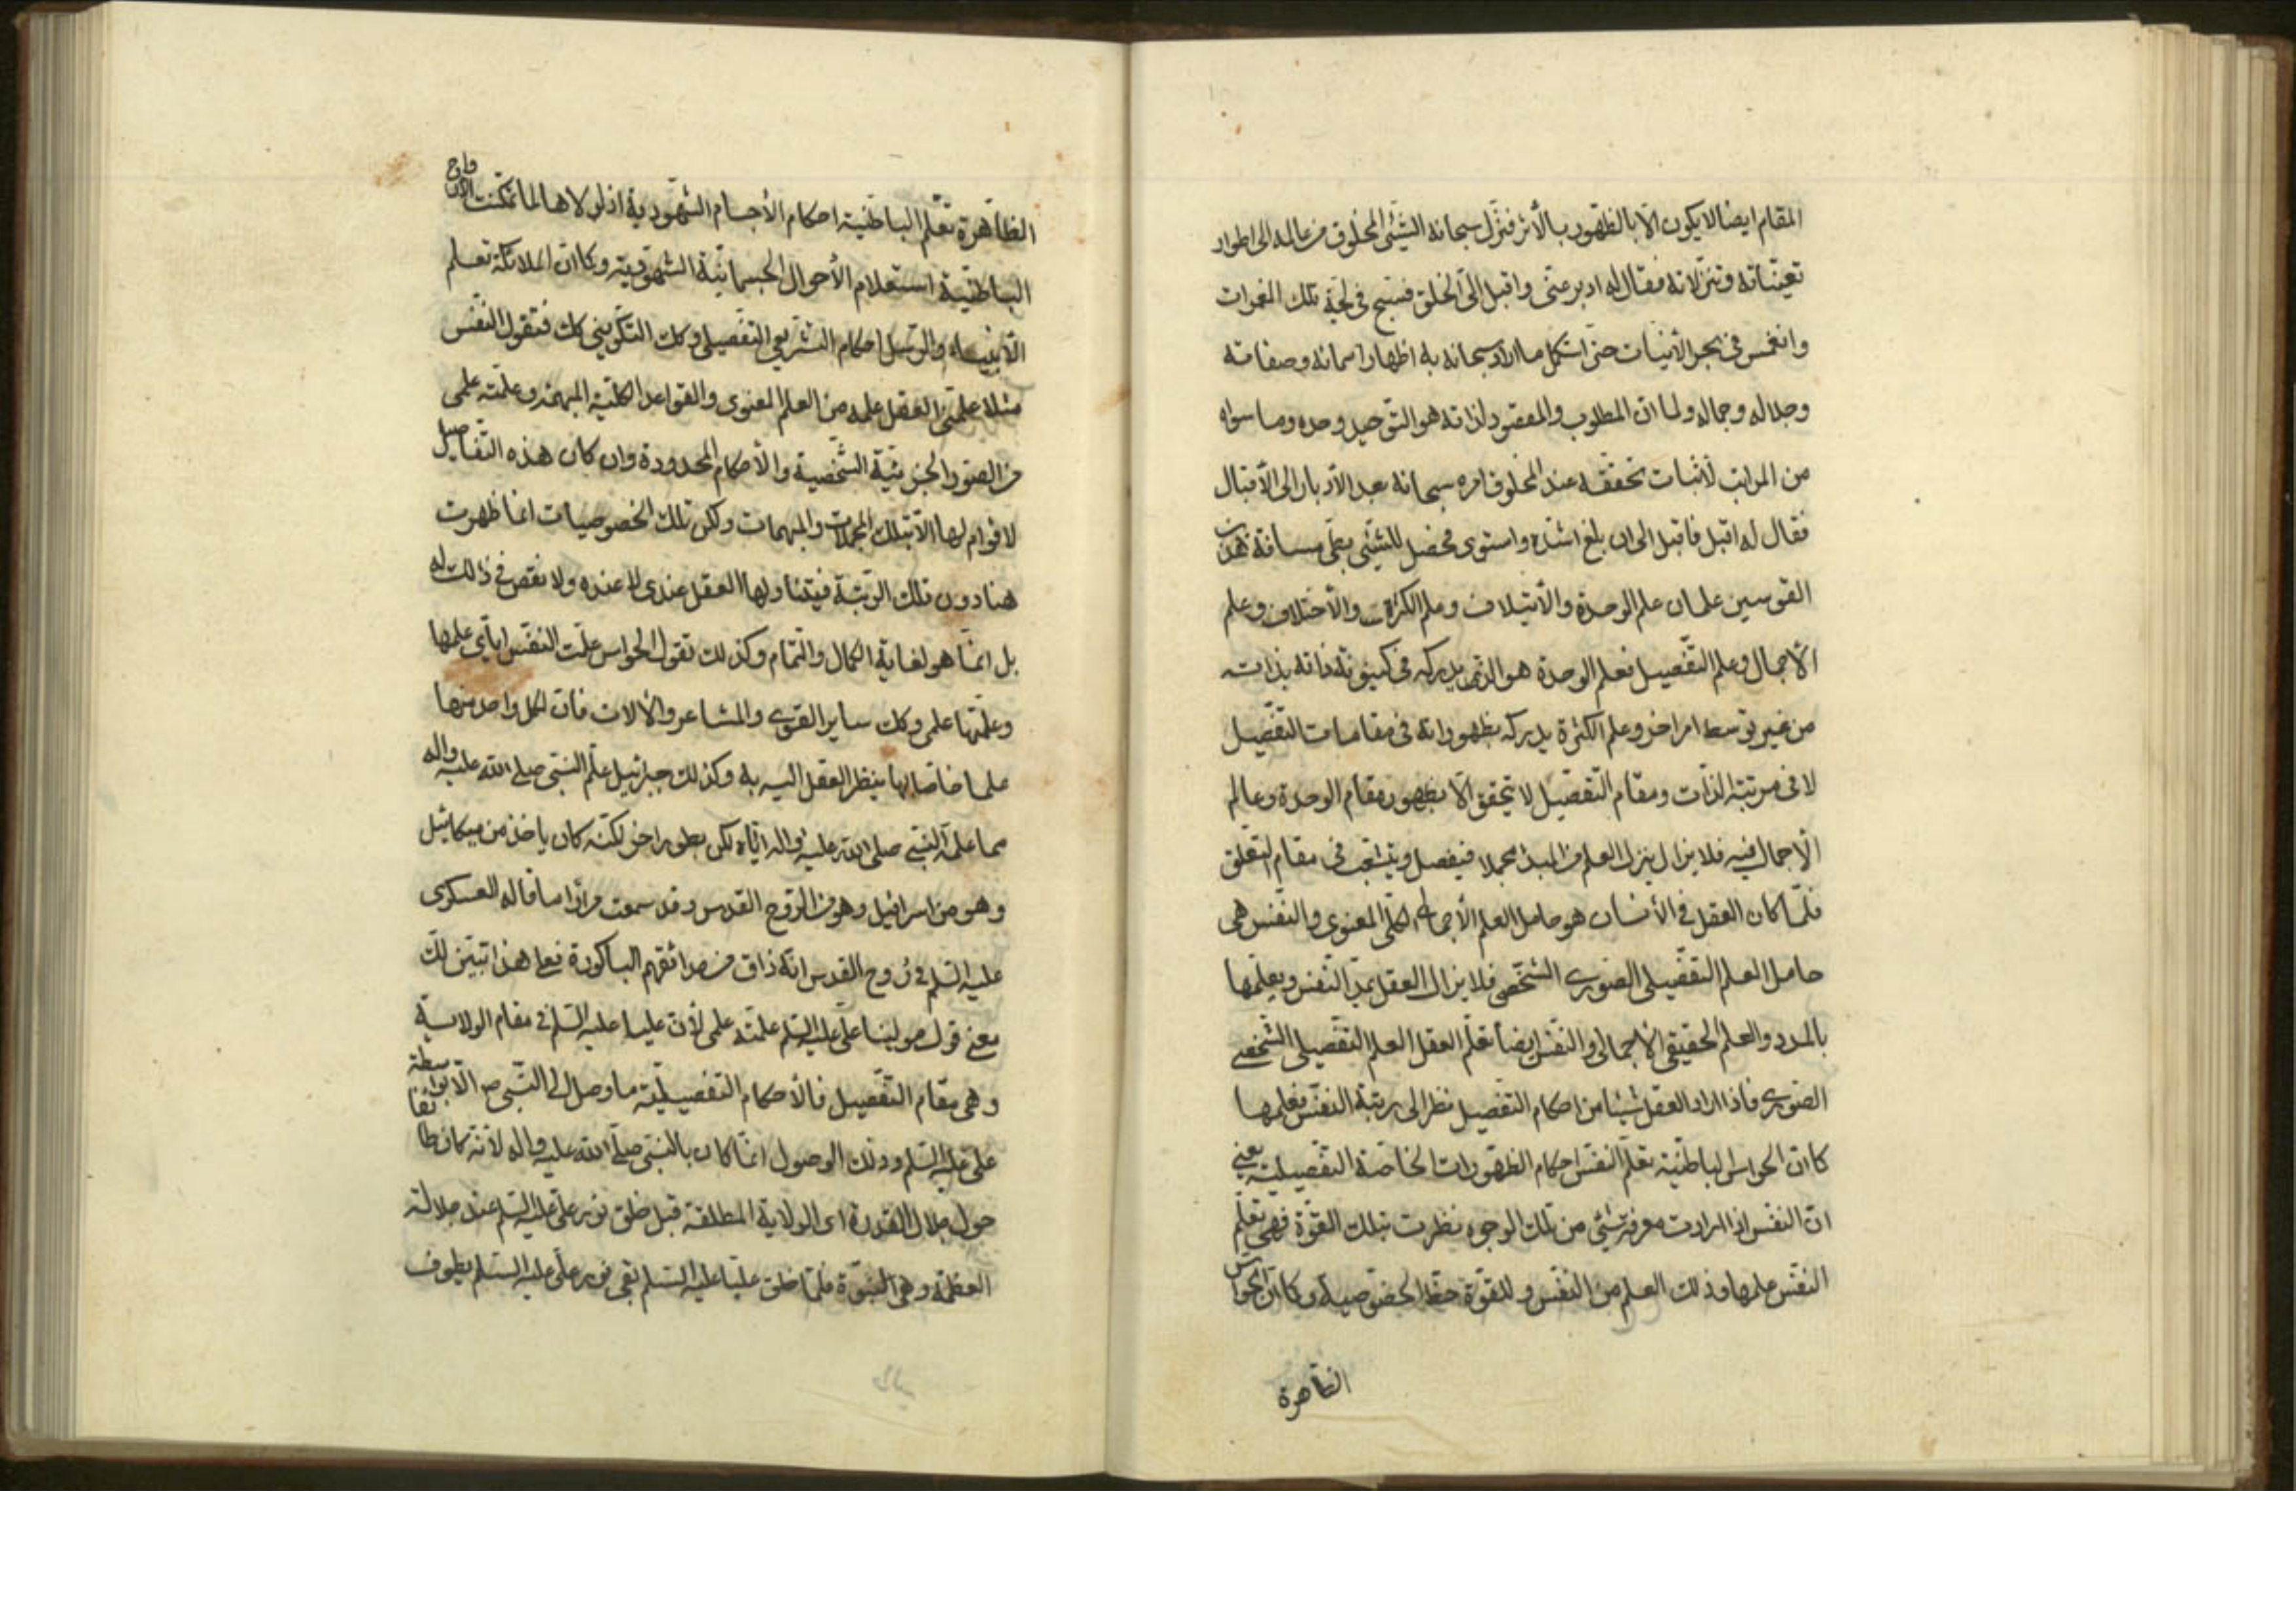 المقام ايضا لا يكون الّا بالظهور بالأثر فنزل سبحانه الشيئ المخلوق من عالمه الى اطوار
تعيّناته وتنزلاته فقال له ادبر عنى واقبل الى الخلق فسبح في لجة تلك الغمرات
وانغمس في بحر الأنيات حتى استكمل ما اراد سبحانه به اظهار اسمائه وصفاته
وجلاله وجماله ولما ان المطلوب والمقصود لذاته هو التوحيد وحده وما سواه
من المراتب لأثبات تحققه عند المخلوق امره سبحانه بعد الأدبار الى الأقبال
فقال له اقبل فاقبل الى ان بلغ اشدّه واستوى فحصل للشيئ بعلى مسافة هذين
القوسين علمان علم الوحدة والأيتلاف وعلم الكثرة والأختلاف وعلم
الأجمال وعلم التفصيل فعلم الوحدة هو الذى يدركه في كينونة ذاته بذاته
من غير توسط امر اخر وعلم الكثرة يدركه بظهوراته في مقامات التفصيل
لا في مرتبة الذات ومقام التفصيل لا يتحقق الّا بظهور مقام الوحدة وعالم
الأجمال فيه فلا يزال ينزل العلم من المبدا مجملا فيفصل ويتشعب في مقام التعلق
فلمّا كان العقل في الأنسان هو حامل العلم الأجمالى الكلّى المعنوى والنفس هى
حامل العلم التفصيلى الصورى الشخصى فلا يزال العقل يمدّ النفس ويعلّمها
بالمدد والعلم الحقيقى الأجمالى والنفس ايضا تعلّم العقل العلم التفصيلى الشخصى
الصورى فاذا اراد العقل شيئا من احكام التفصيل نظر الى رتبة النفس فعلمها
كما ان الحواس الباطنية تعلّم النفس احكام الظهورات الخاصة التفصيلية يعنى
ان النفس اذا ارادت معرفة شيئ من تلك الوجوه نظرت بتلك القوّة فهى تعلّم
النفس علمها وذلك العلم من النفس وللقوّة حظّ الخصوصية وكما ان الحواس
الظاهرة
الظاهرة تعلّم الباطنية احكام الأجسام الشهودية اذ لولاها لما تمكنت الأرواح
الباطنية استعلام الأحوال الجسمانية الشهودية وكما ان الملائكة تعلم
الأنبياء والرسل احكام التشريعى التفصيلى وكك التكوينى كك فتقول النفس
مثلا علّمنى العقل علمه من العلم المعنوى والقواعد الكلّية المبهمة وعلّمته علمى
من الصور الجزئية الشخصية والأحكام المحدودة وان كان هذه التفاصيل
لا قوام لها الّا بتلك المجملات والمبهمات ولكن تلك الخصوصيات انما ظهرت
هنا دون تلك الرتبة فيتناولها العقل عندى لا عنده ولا نقص في ذلك له
بل انمّا هو لغاية الكمال والتمام وكذلك تقول الحواس علّمت النفس اياى علمها
وعلّمتها علمى وكك ساير القوى والمشاعر والألات فان لكل واحد منها
علما خاصا بها ينظر العقل اليه به وكذلك جبرئيل علّم النبى صلى الله عليه واله
مما علمه النبى صلى الله عليه واله اياه لكن بطور اخر لكنه كان ياخذ من ميكائيل
وهو من اسرافيل وهو من الروح القدس وقد سمعت مرارا ما قاله العسكرى
عليه السلم في روح القدس انه ذاق من حدائقهم الباكورة فعلى هذا تبيّن لك
معنى قول مولينا على عليه السلم علمته علمى لأن عليا عليه السلم في مقام الولاية
وهى مقام التفصيل فالأحكام التفصيلية ما وصل الى النبى ص الّا بواسطة
على عليه السلم وذلك الوصول انمّا كان بالنبى صلى الله عليه واله لأنه كان طائفا
حول جلال القدرة اى الولاية المطلقة قبل خلق نور على عليه السلم عند جلالة
العظمة وهى النبوّة فلمّا خلق عليا عليه السلم بقى نور على عليه السلم يطوف